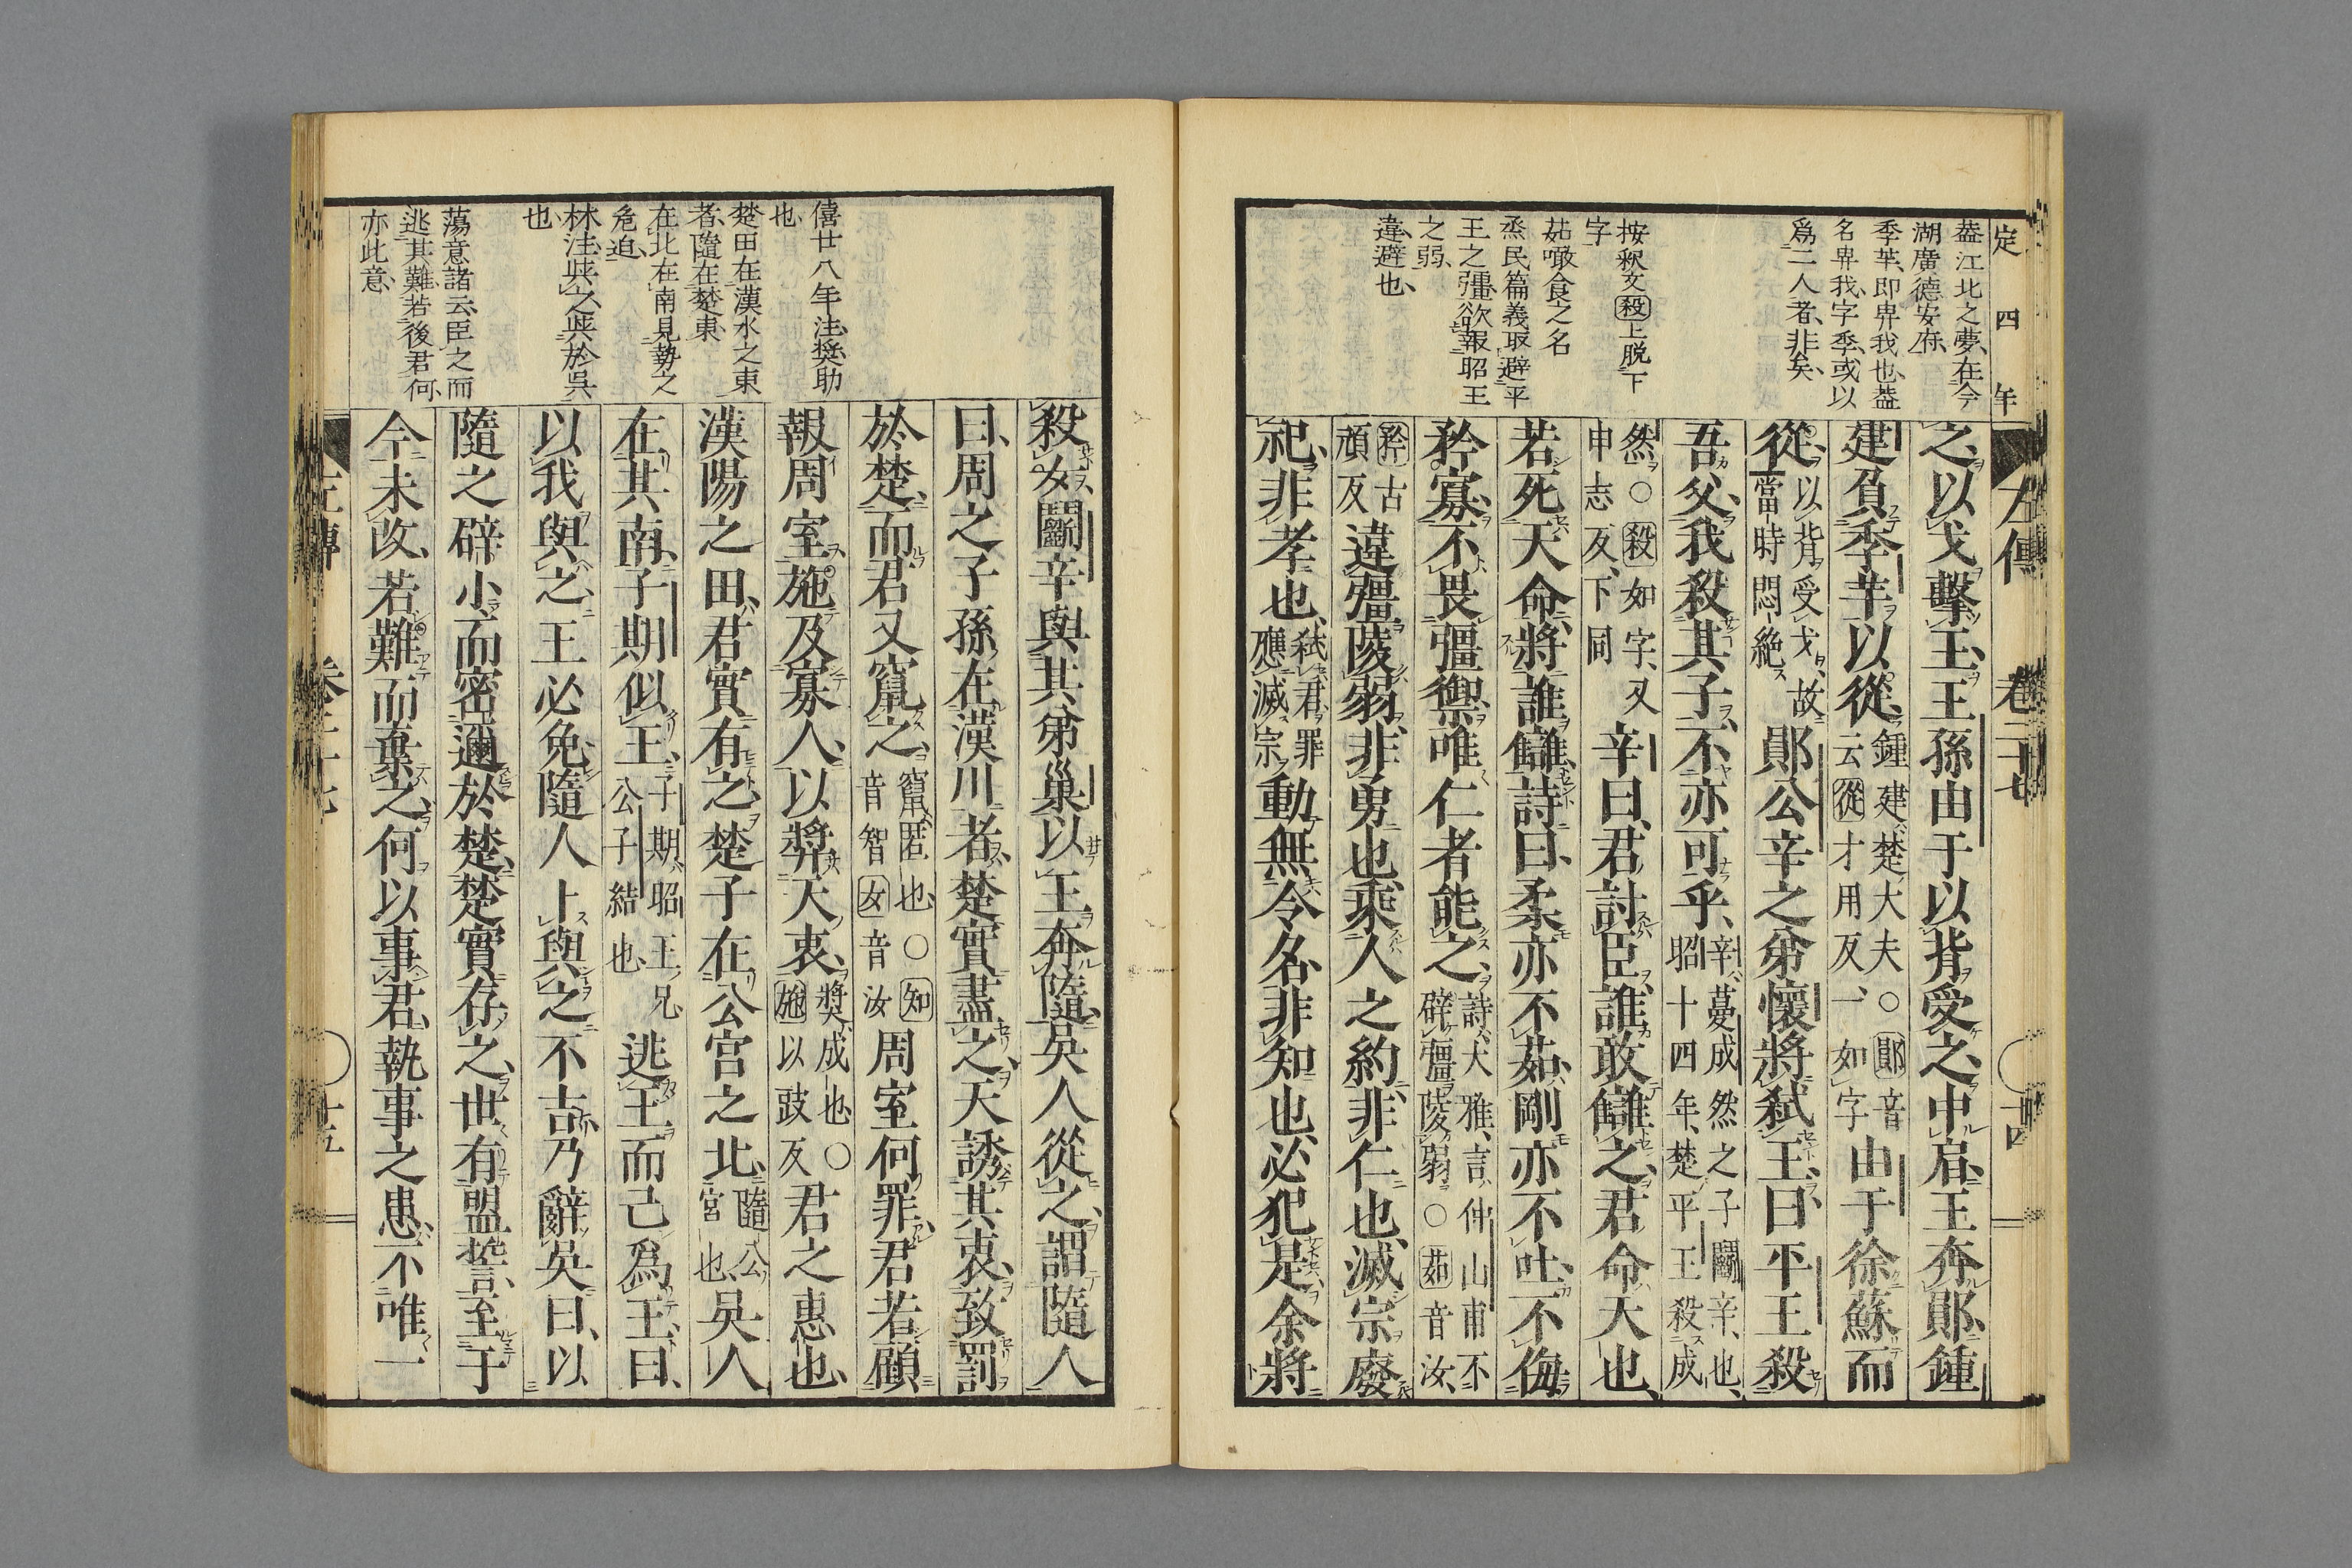 定四年
左傳 卷二十七 十四
葢江北之夢、在今
湖廣德安府、
季芈、即畀我也、葢
名畀我、字季、或以
爲二人者、非矣、
按釈文殺上脱下
字
茹噉食之名
烝民篇義取避平
王之彊、欲報昭王
之弱、
違避也、
之、以戈擊王、王孫由于以背受之、中肩、王奔鄖、鍾
建負季芈以從、鍾建楚大夫○鄖音
云從才用反、一如字
由于徐蘇而
從、以背受戈、故
當時悶絶
鄖公辛之弟懷將弑王、曰、平王殺
吾父、我殺其子、不亦可乎、辛蔓成然之子鬭辛也、
昭十四年、楚平王殺成
然○殺如字、又
申志反、下同
辛曰、君討臣、誰敢讎之、君命天也、
若死天命、將誰讎、詩曰、柔亦不茹、剛亦不吐、不侮
矜寡、不畏彊禦、唯仁者能之、詩大雅、言仲山甫不
辟彊陵弱○茹音汝、
矜古
頑反
違彊陵弱、非勇也、乘人之約、非仁也、滅宗廢
祀、非孝也、弑君罪
應滅宗
動無令名、非知也、必犯是、余將
殺女、鬭辛與其弟巢以王奔隨、吳人從之、謂隨人
曰、周之子孫、在漢川者、楚實盡之、天誘其衷、致罰
於楚、而君又竄之、竄匿也、○知
音智女音汝
周室何罪、君若顧
報周室、施及寡人、以奬天衷、奬成也、○
施以豉反
君之惠也、
漢陽之田、君實有之、楚子在公宮之北、隨公
宮也、
吳人
在其南、子期似王、子期、昭王兄
公子結也、
逃王而己爲王、曰、
以我與之、王必免、隨人卜與之、不吉、乃辭吳曰、以
隨之辟小、而密邇於楚、楚實存之、世有盟誓、至于
今未改、若難而棄之、何以事君、執事之患、不唯一
僖廿八年注、奬助
也、
楚田在漢水之東
者、隨在楚東、
在北在南、見勢之
危迫、
林注、與之、與於吳
也、
蕩意諸云、臣之而
逃其難、若後君何、
亦此意、
左傳 卷二十七 十五